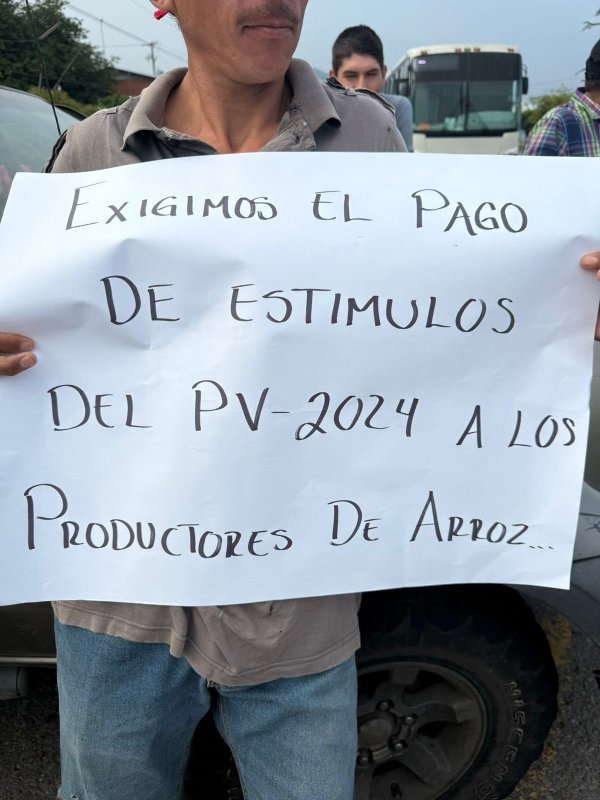 EXIGIMOS EL PAGO
DE ESTIMULOS
DEL PV-2024 A LOS
PRODUCTORES DE ARROZ...